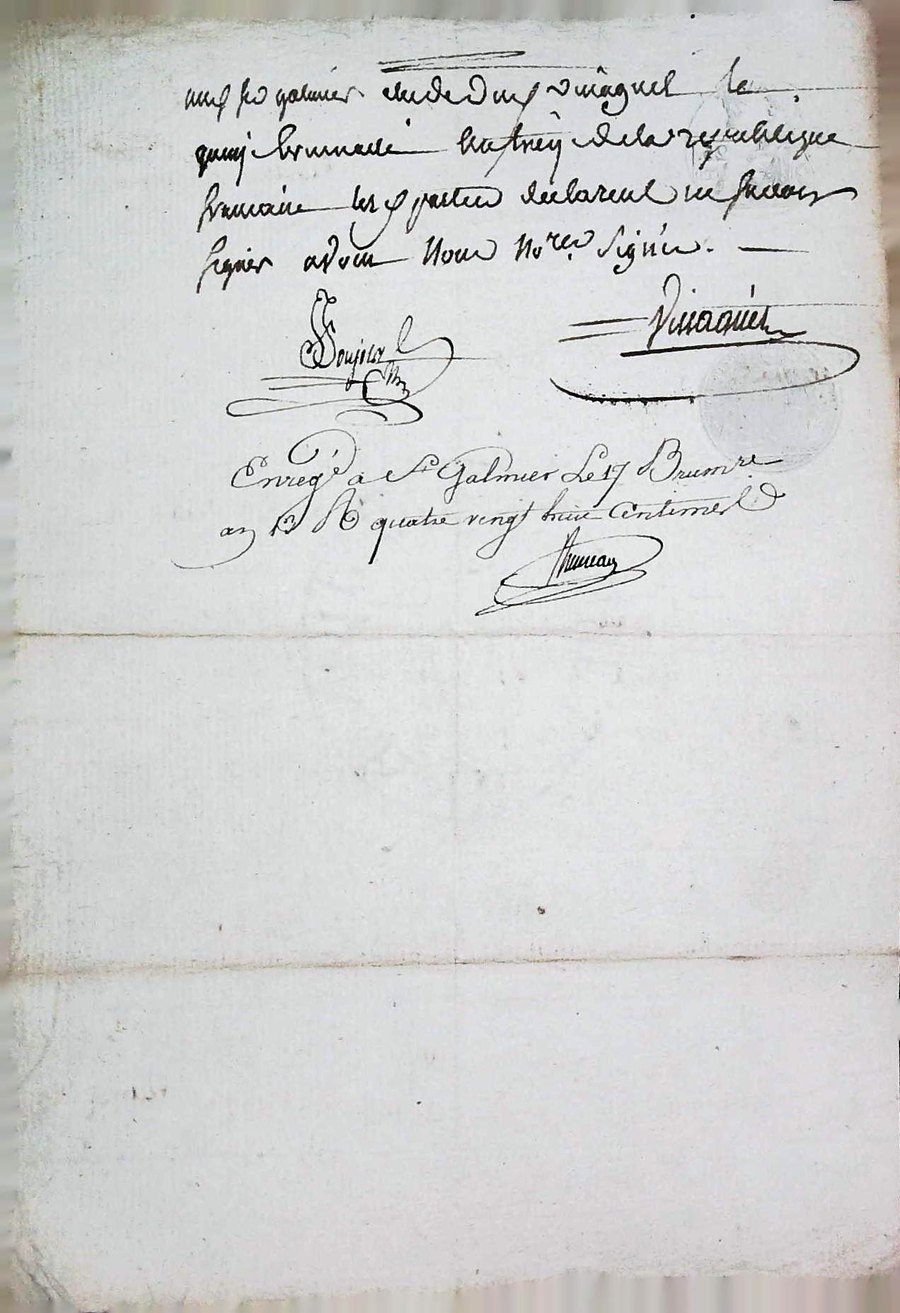 St galmier etude du dit vinagnet le
quinze brumaire an treize de la republique
francaise les parties declarent ne savoir
signer avons Nous No.res signé.
Vinaguet
Enreg.é a St Galmier Le 17 Brum.re
an 13 R quatre vingt huit Centimes